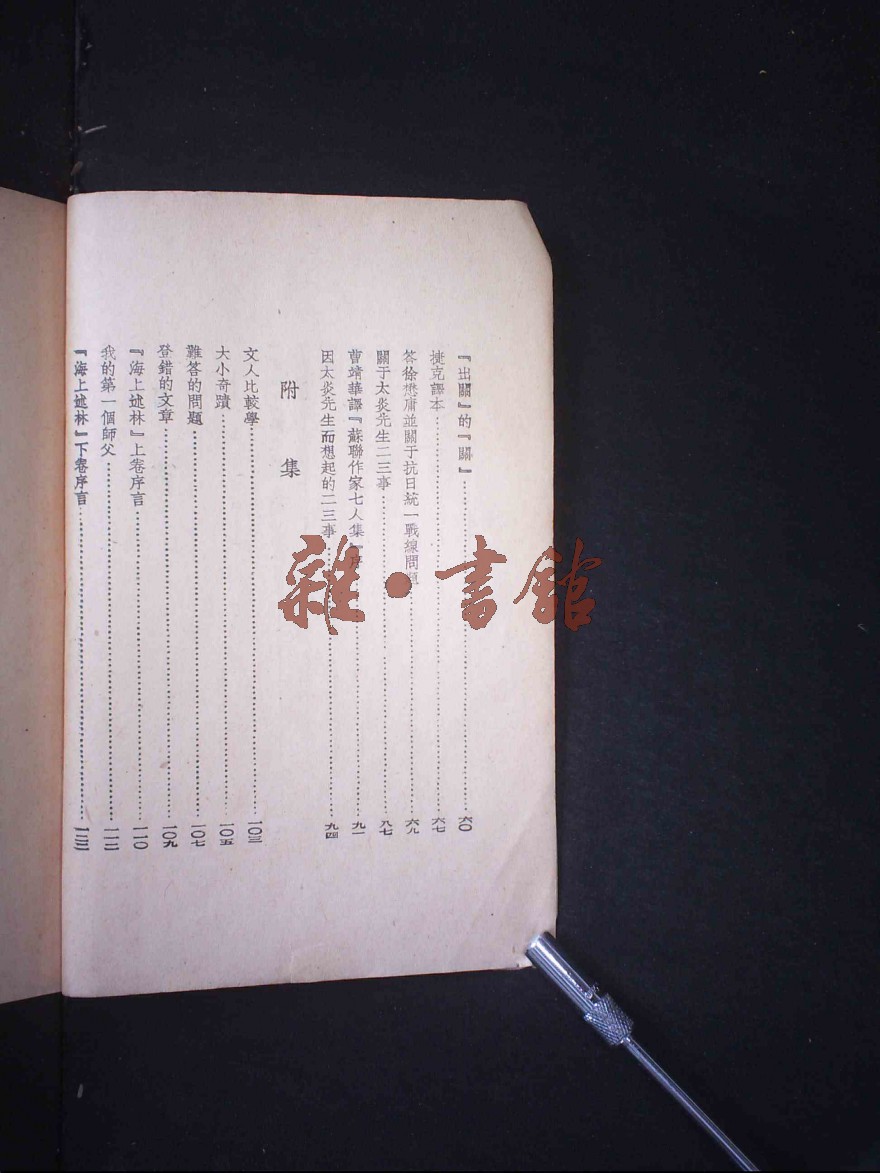 『出關』的『關』…………六〇
捷克譯本…………六七
答徐懋庸並關于抗日統一戰線問題…………六九
關于太炎先生二三事…………八七
曹靖華譯『蘇聯作家七人集』序…………九一
因太炎先生而想起的二三事…………九四
附集
文人比較學…………一〇三
大小奇蹟…………一〇五
難答的問題…………一〇七
登錯的文章…………一〇九
『海上述林』上卷序言…………一一〇
我的第一個師父…………一一二
『海上述林』下卷序言…………
雜·書館